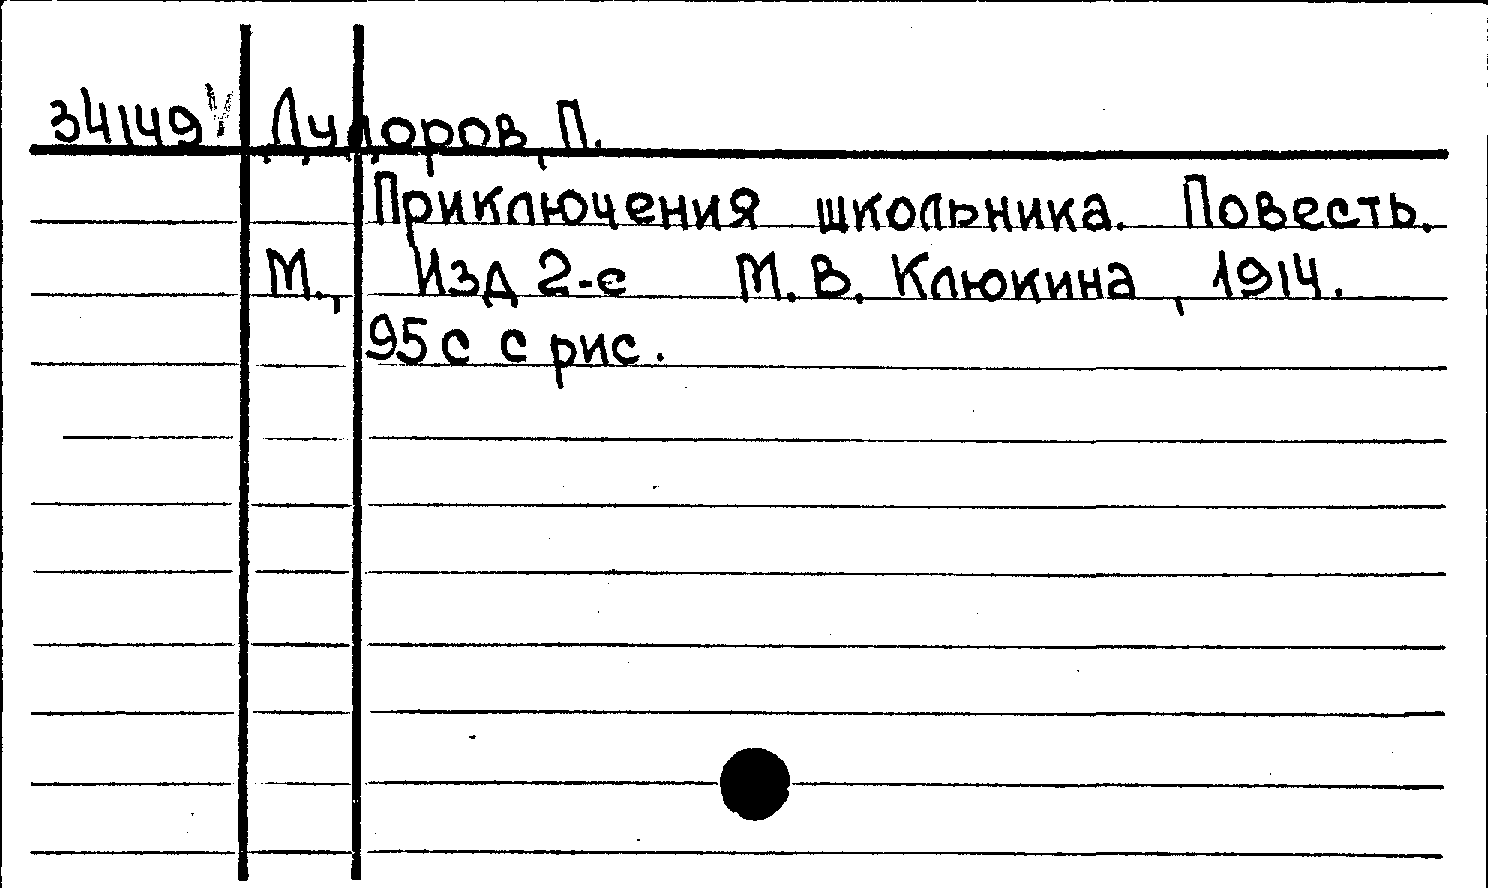 34149 Дудоров, П.
Приключения школьника. Повесть.
М., Изд 2-е М. В. Клюкина, 1914.
95 с с рис.